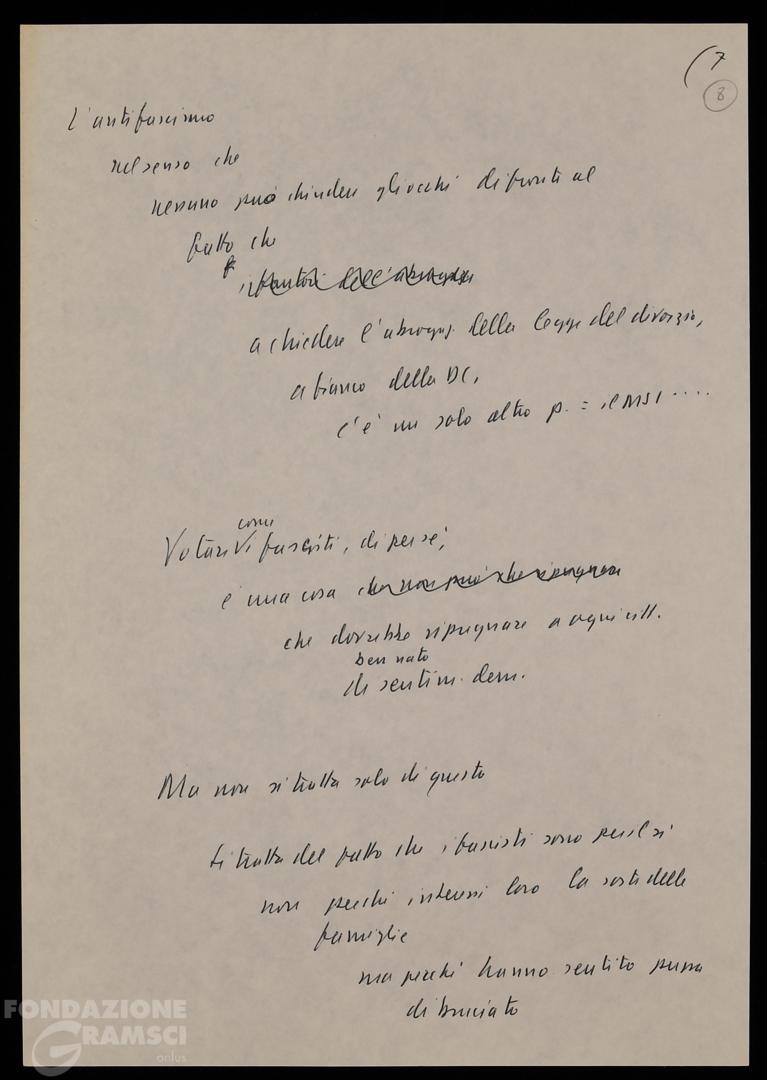 (7
8
L'antifascismo
nel senso che
nessuno può chiudere gli occhi di fronte al
fatto che
i fautori dell'abrogaz
a chiedere l'abrogaz. della legge del divorzio,
a fianco della DC,
c'è un solo altro p. = il MSI ....
come
Votare i fascisti, di per sé,
è una cosa che non può che ripugnare
che dovrebbe ripugnare a ogni citt.
ben nato
di sentim. dem.
Ma non si tratta solo di questo
Si tratta del fatto che i fascisti sono per il sì
non perché interessi loro la sorte delle
famiglie
ma perché hanno sentito puzza
di bruciato
FONDAZIONE
GRAMSCI
onlus